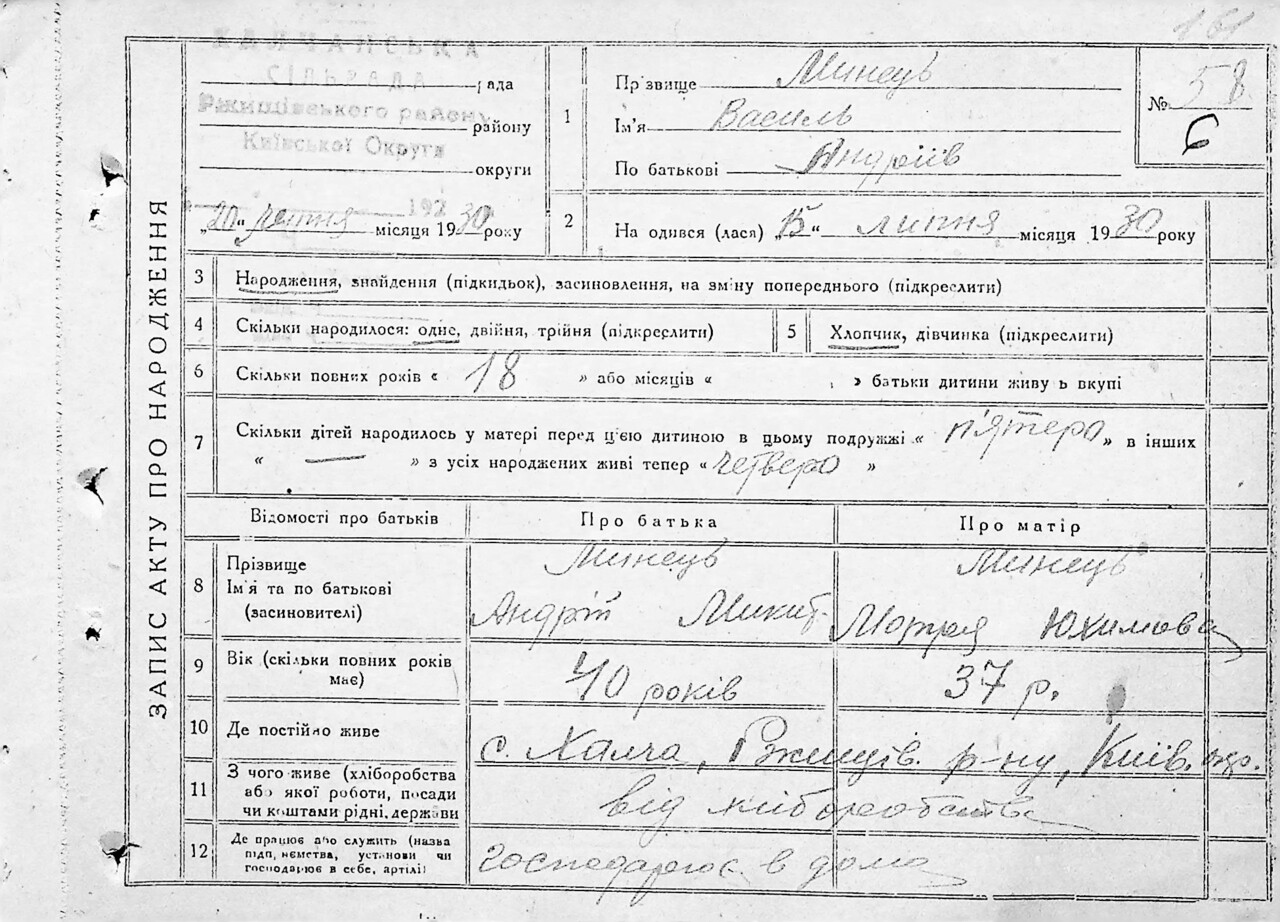 161
ХАЛЧАНСЬКА
СІЛЬРАДА
рада
Ржищівського району
району
Київської Округи
округи
192
„20" липня місяця 1930 року
ЗАПИС АКТУ ПРО НАРОДЖЕННЯ
1 Прізвище Минець
Ім'я Василь
По батькові Андріїв
№ 58
6
2 На одився (лася) „15" липня місяця 1930 року
3 Народження, знайдення (підкидьок), засиновлення, на зміну попереднього (підкреслити)
4 Скільки народилося: одне, двійня, трійня (підкреслити)
5 Хлопчик, дівчинка (підкреслити)
6 Скільки повних років « 18 » або місяців « » батьки дитини живу ь вкупі
7 Скільки дітей народилось у матері перед цією дитиною в цьому подружжі « п'ятеро » в інших
« — » з усіх народжених живі тепер « четверо »
Відомості про батьків Про батька Про матір
8 Прізвище Минець Минець
Ім'я та по батькові
(засиновителі) Андрій Микит. Мотря Юхимова
9 Вік (скільки повних років
має) 40 років 37 р.
10 Де постійно живе с. Халча, Ржищів. р-ну, Київ. окр.
11 З чого живе (хліборобства
або якої роботи, посади
чи коштами рідні, держави від хліборобства
12 Де працює або служить (назва
підп, иємства, установи чи
господарює в себе, артілі) господарює в дома